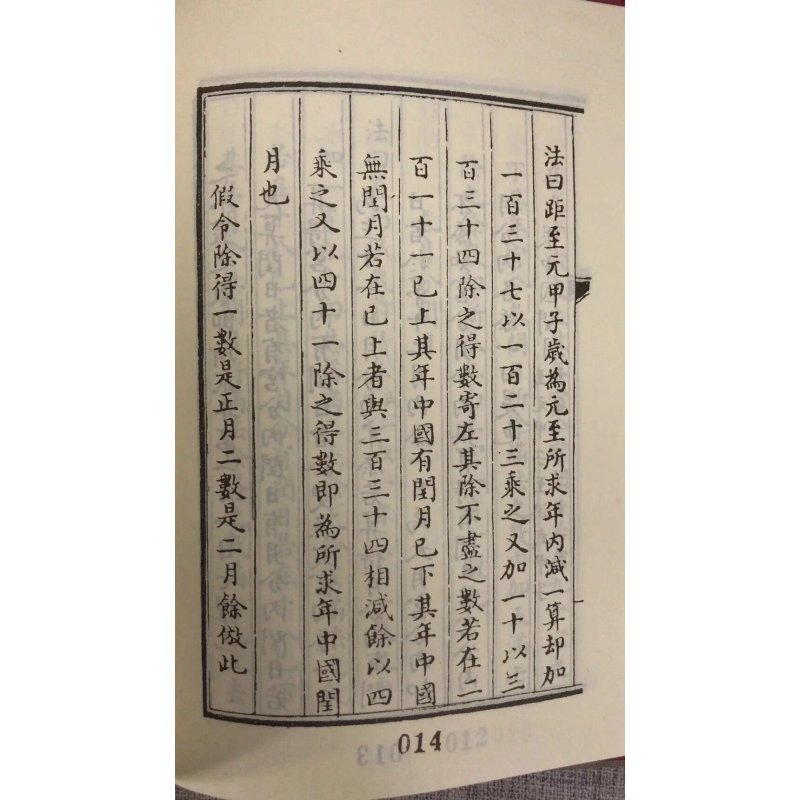 法曰距至元甲子歲為元至所求年内減一算却加
一百三十七以一百二十三乘之又加一十以三
百三十四除之得數寄左其除不盡之數若在二
百一十一已上其年中國有閏月已下其年中國
無閏月若在已上者與三百三十四相減餘以四
乘之又以四十一除之得數即為所求年中國閏
月也
假令除得一數是正月二數是二月餘倣此
014